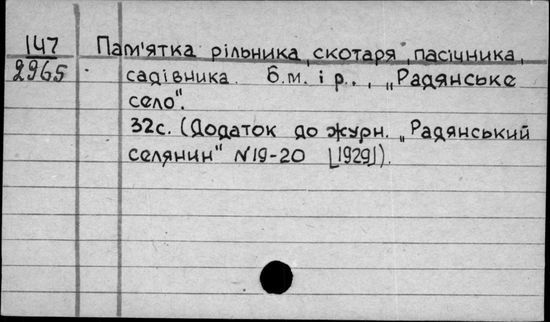 147 Пам'ятка рільника, скотаря, пасічника,
2965 садівника. б.м. і р., „Радянське
село".
32с. (Додаток до журн. „Радянський
селянин" №19-20 [1929]).